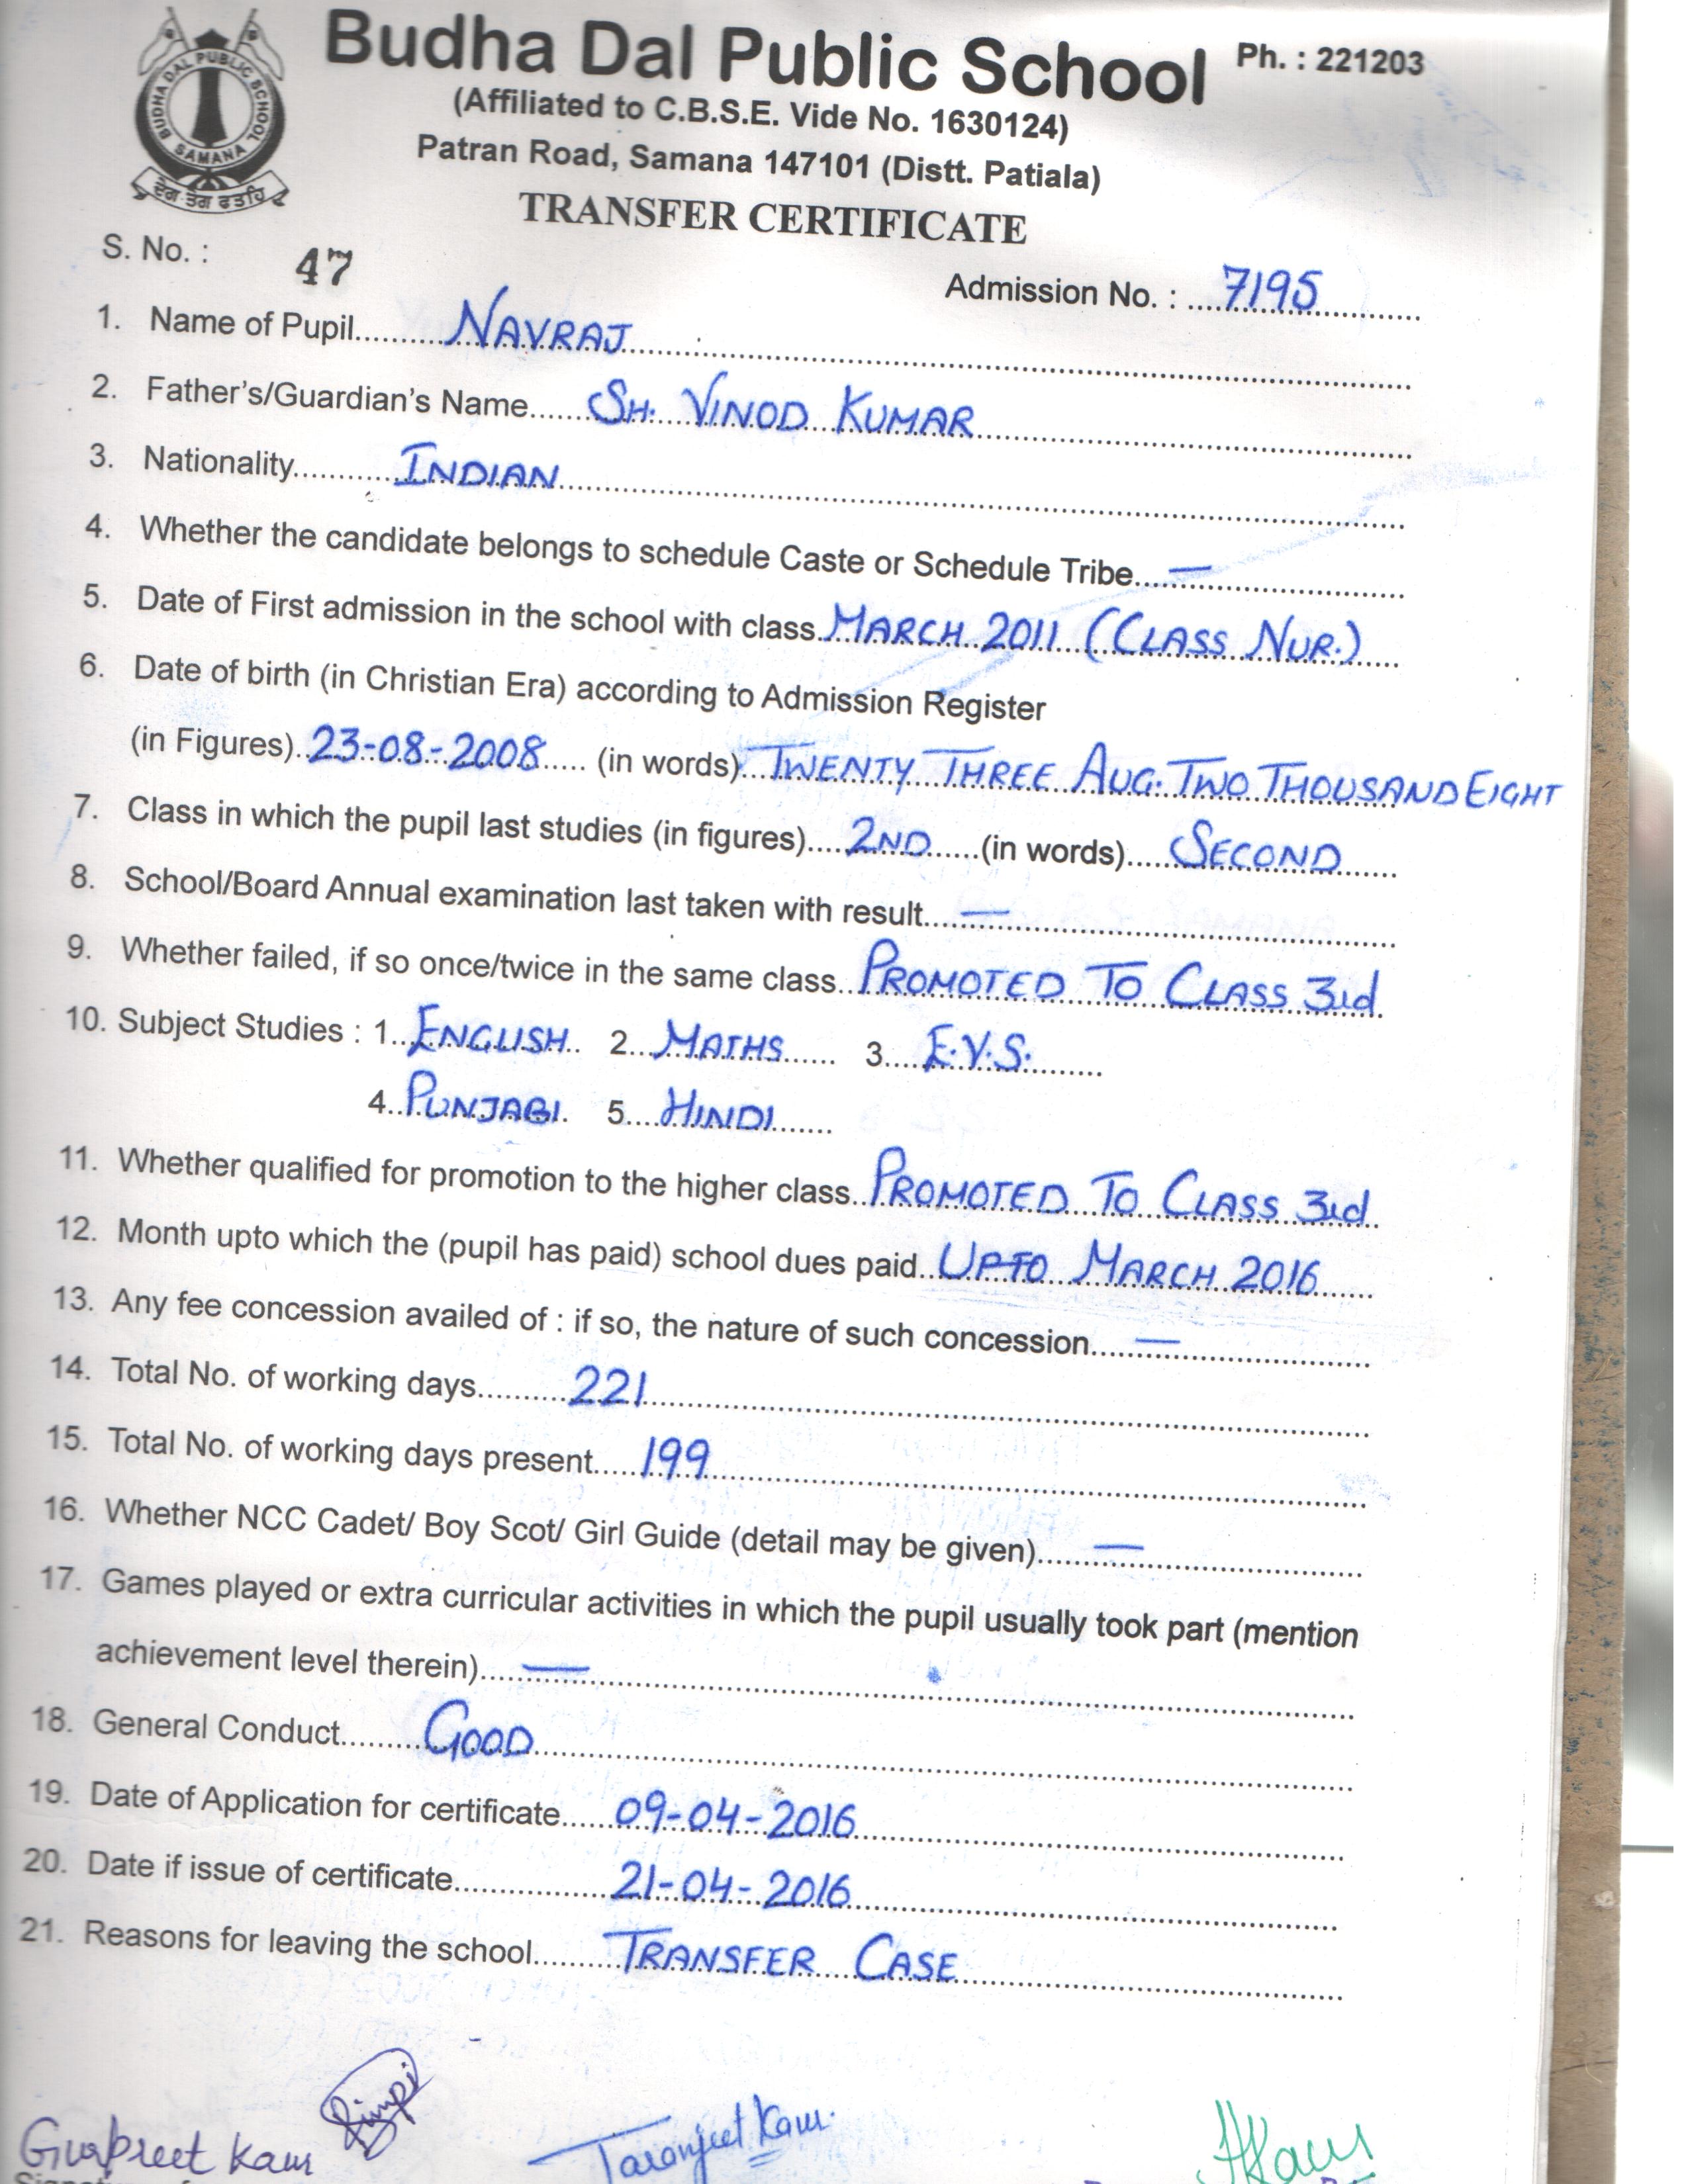 Budha Dal Public School Ph. : 221203
BUDHA DAL PUBLIC SCHOOL
SAMANA
ਦੇਗ ਤੇਗ ਫਤਹਿ
(Affiliated to C.B.S.E. Vide No. 1630124)
Patran Road, Samana 147101 (Distt. Patiala)
TRANSFER CERTIFICATE
S. No. : 47
Admission No. : 7195
1. Name of Pupil NAVRAJ
2. Father's/Guardian's Name SH. VINOD KUMAR
3. Nationality INDIAN
4. Whether the candidate belongs to schedule Caste or Schedule Tribe —
5. Date of First admission in the school with class MARCH 2011 (CLASS NUR.)
6. Date of birth (in Christian Era) according to Admission Register
(in Figures) 23-08-2008 (in words) TWENTY THREE AUG. TWO THOUSAND EIGHT
7. Class in which the pupil last studies (in figures) 2ND (in words) SECOND
8. School/Board Annual examination last taken with result —
9. Whether failed, if so once/twice in the same class PROMOTED TO CLASS 3rd
10. Subject Studies : 1. ENGLISH 2. MATHS 3. E.V.S.
4. PUNJABI 5. HINDI
11. Whether qualified for promotion to the higher class PROMOTED TO CLASS 3rd
12. Month upto which the (pupil has paid) school dues paid UPTO MARCH 2016
13. Any fee concession availed of : if so, the nature of such concession —
14. Total No. of working days 221
15. Total No. of working days present 199
16. Whether NCC Cadet/ Boy Scot/ Girl Guide (detail may be given) —
17. Games played or extra curricular activities in which the pupil usually took part (mention
achievement level therein) —
18. General Conduct GOOD
19. Date of Application for certificate 09-04-2016
20. Date if issue of certificate 21-04-2016
21. Reasons for leaving the school TRANSFER CASE
Gurpreet Kaur Rimpi Taranjeet Kaur Kaur